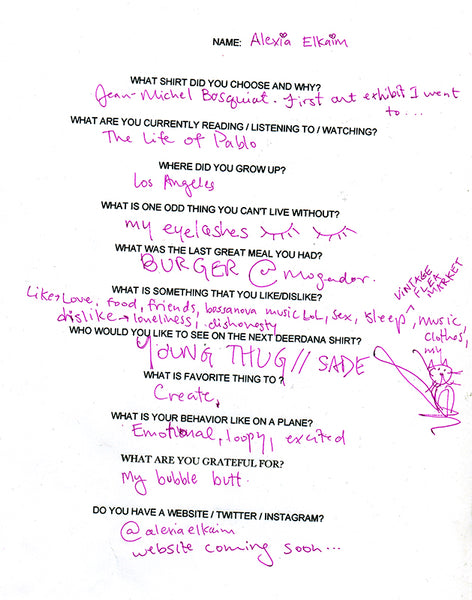 NAME: Alexia Elkaim
WHAT SHIRT DID YOU CHOOSE AND WHY?
Jean-Michel Basquiat. First art exhibit I went
to...
WHAT ARE YOU CURRENTLY READING / LISTENING TO / WATCHING?
The Life of Pablo
WHERE DID YOU GROW UP?
Los Angeles
WHAT IS ONE ODD THING YOU CAN'T LIVE WITHOUT?
my eyelashes
WHAT WAS THE LAST GREAT MEAL YOU HAD?
BURGER @ mogador.
WHAT IS SOMETHING THAT YOU LIKE/DISLIKE?
Like → Love, food, friends, bossanova music LOL, sex, sleep, music,
VINTAGE
FLEA
MARKET
clothes,
my
dislike → loneliness, dishonesty
WHO WOULD YOU LIKE TO SEE ON THE NEXT DEERDANA SHIRT?
YOUNG THUG // SADE
WHAT IS FAVORITE THING TO ?
Create,
WHAT IS YOUR BEHAVIOR LIKE ON A PLANE?
Emotional, loopy, excited
WHAT ARE YOU GRATEFUL FOR?
My bubble butt.
DO YOU HAVE A WEBSITE / TWITTER / INSTAGRAM?
@alexiaelkaim
website coming soon...